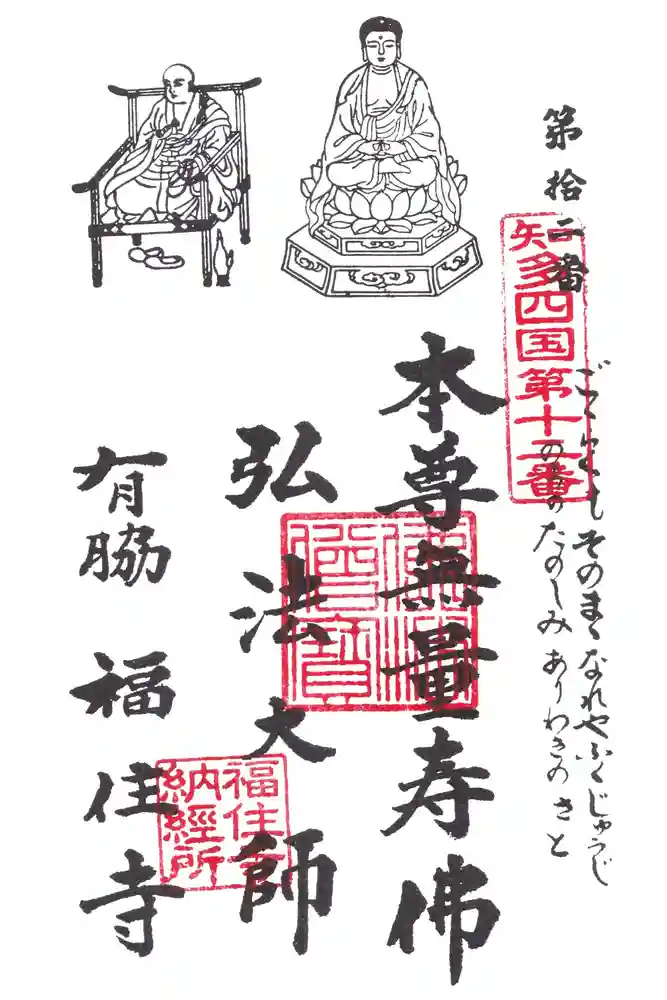 第拾二番
知多四国第十二番
ごくらくも そのまゝ なれや ふくじゅうじ
のちの たのしみ ありわきの さと
本尊無量寿佛
佛法僧寶
弘法大師
福住寺
納経所
有脇 福住寺